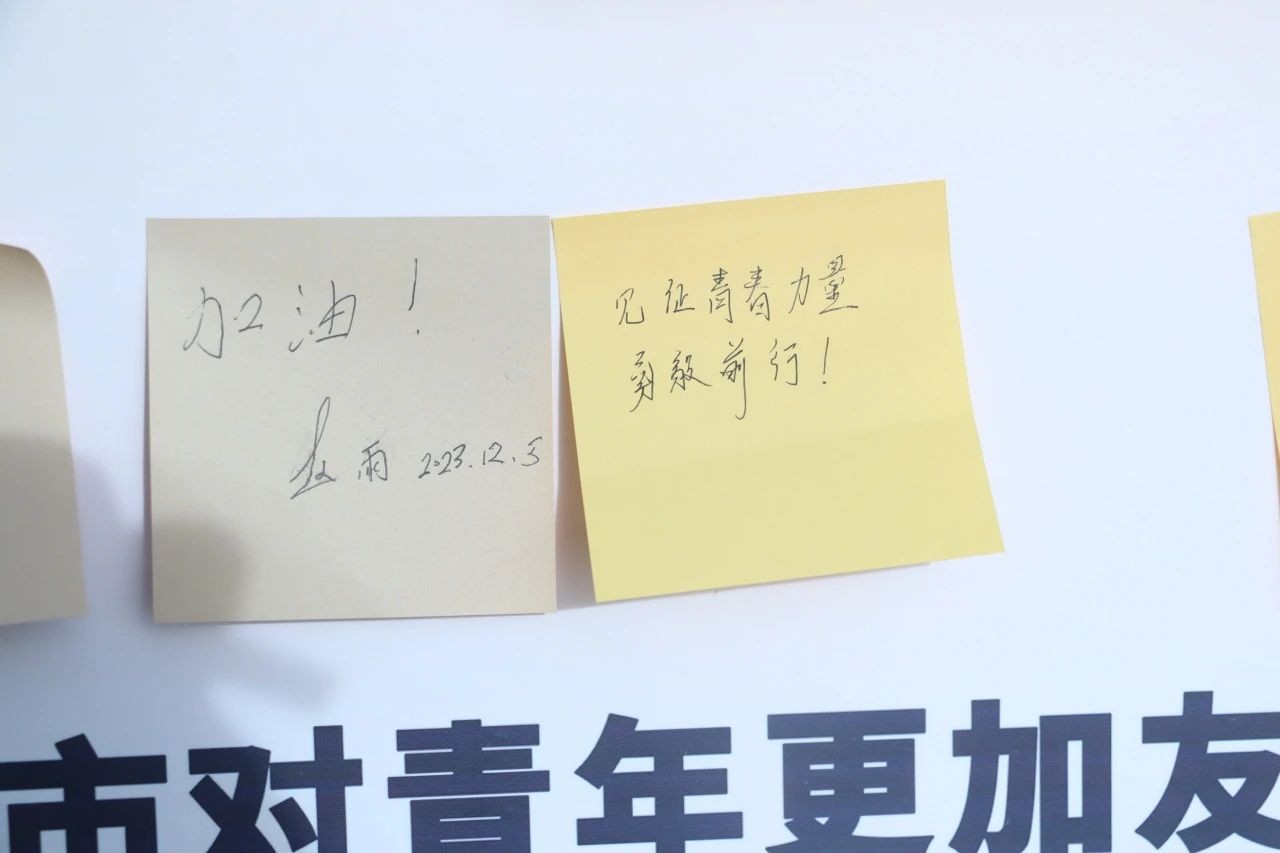 加油！
雨 2023.12.5
见证青春力量
勇毅前行！
市对青年更加友